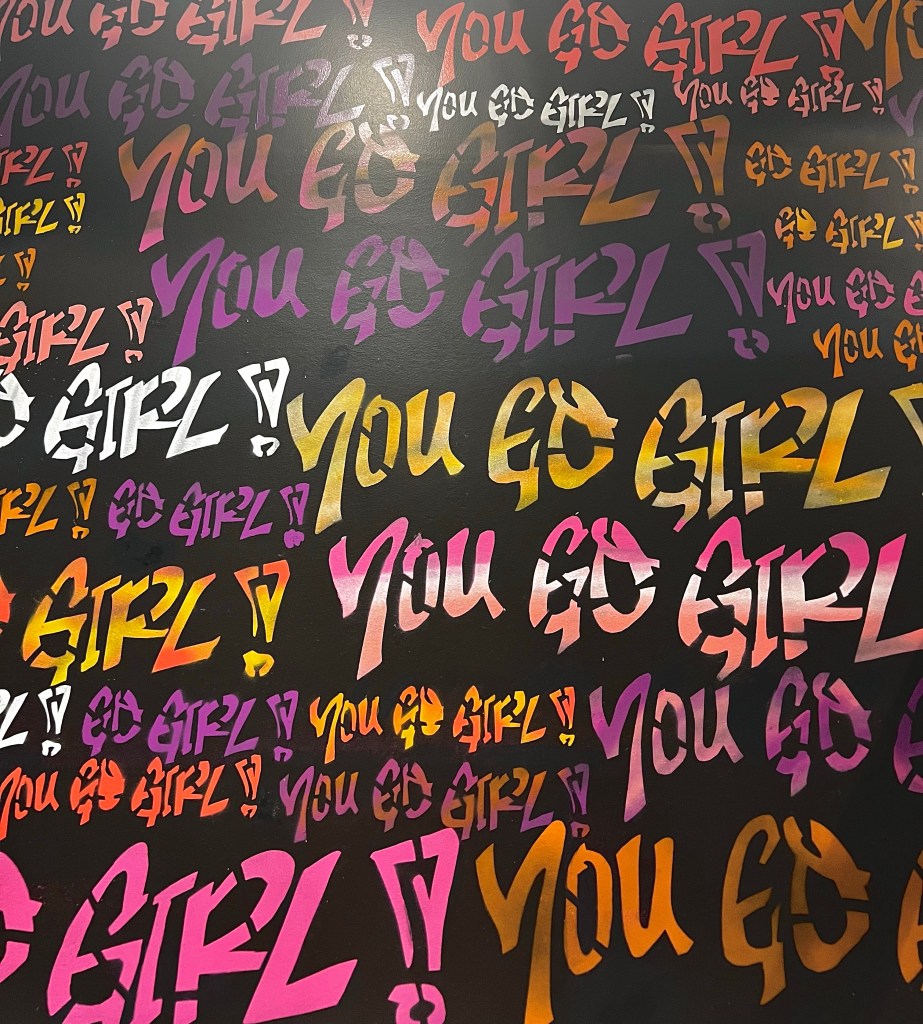 YOU GO GIRL!
YOU GO GIRL!
YOU GO GIRL!
YOU GO GIRL!
YOU GO GIRL!
GIRL!
YOU GO GIRL!
GO GIRL!
GIRL!
GO GIRL!
YOU GO GIRL!
YOU GO
GIRL!
YOU GO
GIRL!
YOU GO GIRL!
GIRL!
GO GIRL!
GIRL!
YOU GO GIRL
GO GIRL!
YOU GO GIRL!
YOU GO
YOU GO GIRL!
YOU GO GIRL!
GIRL!
YOU GO